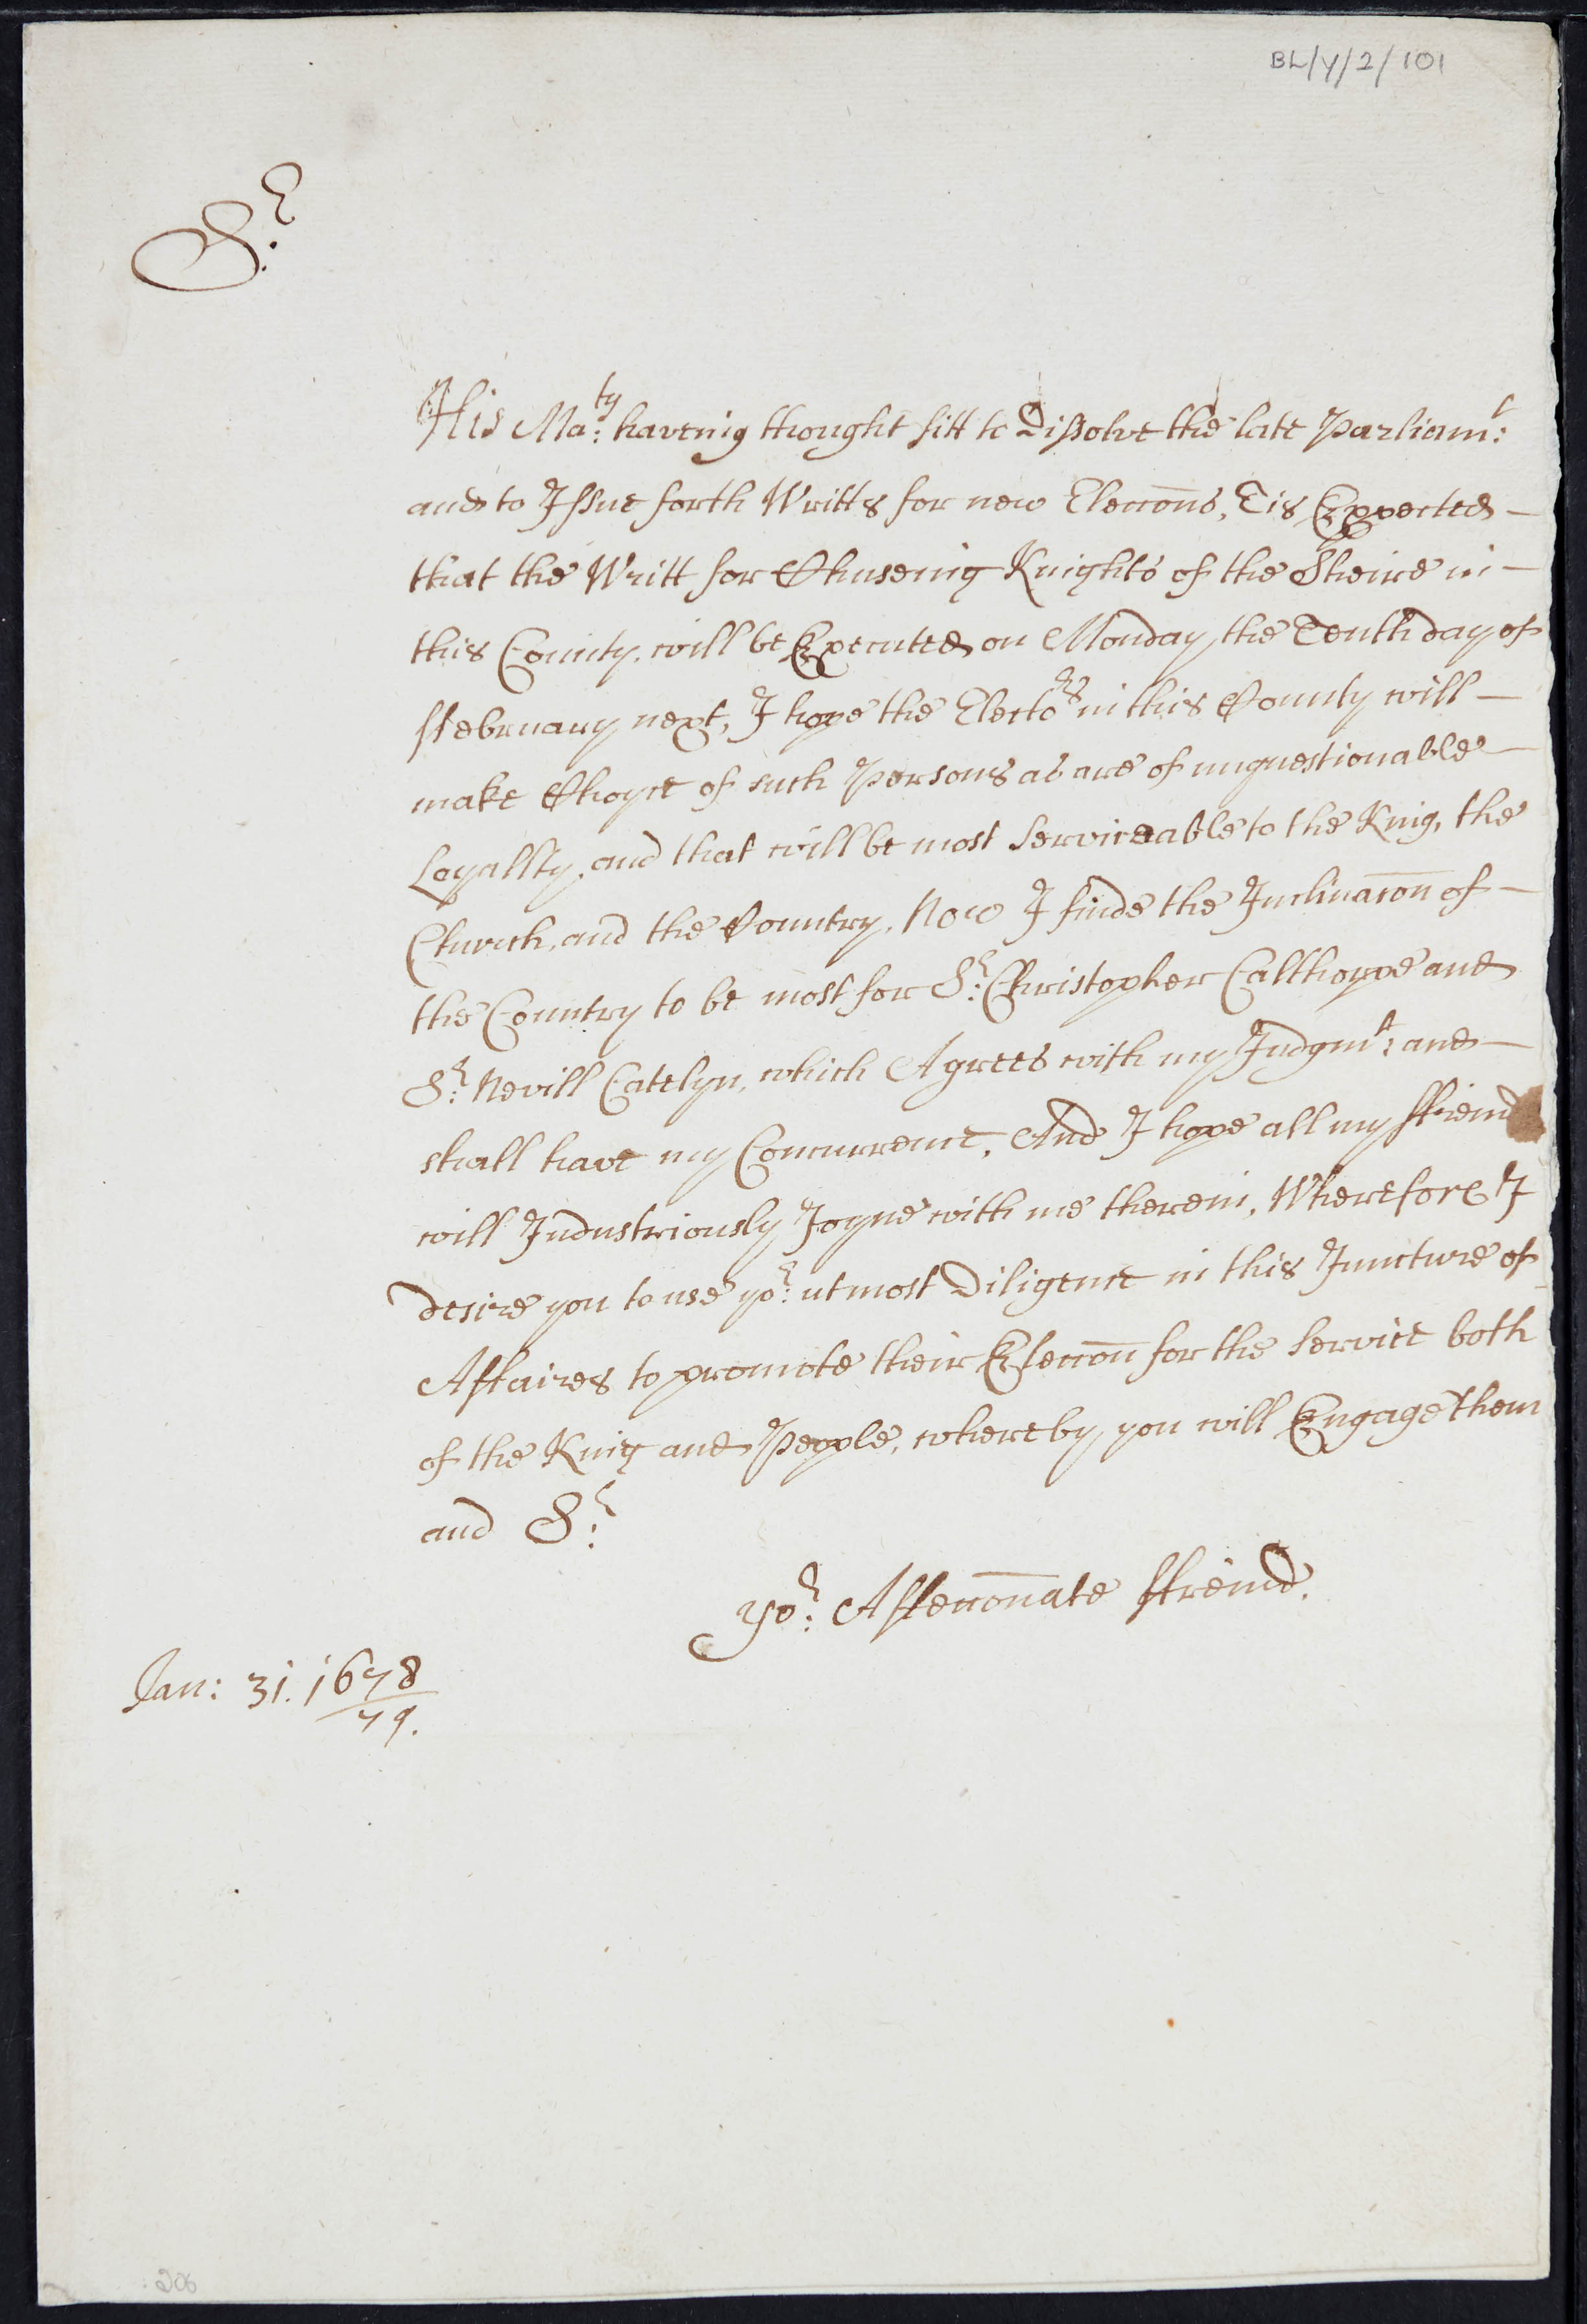 BL/Y/2/101
Sr:
His Maty: haveing thought fitt to Dissolve the late Parliamt:
and to Issue forth Writts for new Eleccons, Tis Expected
that the Writt for Chuseing Knights of the Sheire in
this County, will be Executed on Monday the Tenth day of
ffebruary next, I hope the Electors in this County will
make Choyce of such Persons as are of unquestionable
Loyallty, and that will be most Serviceable to the King, the
Church, and the Country, Now I finde the Inclinacon of
the Country to be most for Sr: Christopher Calthorpe and
Sr: Nevill Catelyn, which Agrees with my Judgmt: and
shall have my Concurrence, And I hope all my ffreind
will Industriously Joyne with me therein, Wherefore I
desire you to use yor: utmost Diligence in this Juncture of
Affaires to promote their Eleccon for the Service both
of the King and People, whereby you will Engage them
and Sr:
Yor: Affecconate ffreind.
Jan: 31. 1678
79.
206